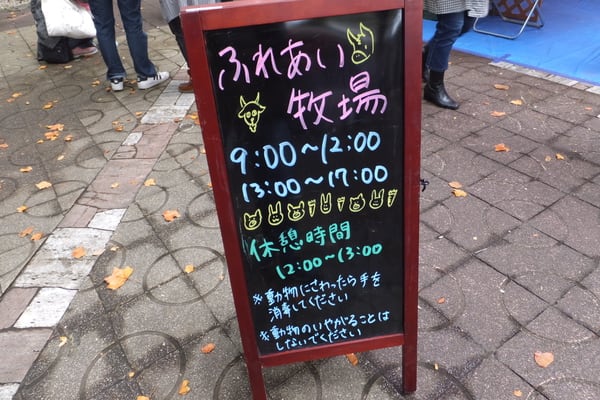 ふれあい
牧場
9:00～12:00
13:00～17:00
休憩時間
12:00～13:00
※動物にさわったら手を
消毒してください
※動物のいやがることは
しないでください